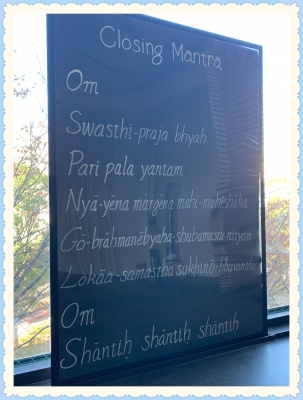 Closing Mantra
Om
Swasthi-praja bhyah
Pari pala yantam
Nyā-yēna mārgena mahi-mahishāha
Gō-brāhmanēbyaha-shubamastu-nityam
Lokāa-samasthā sukhinō-bhavanthu
Om
Shāntiḥ shāntiḥ shāntiḥ